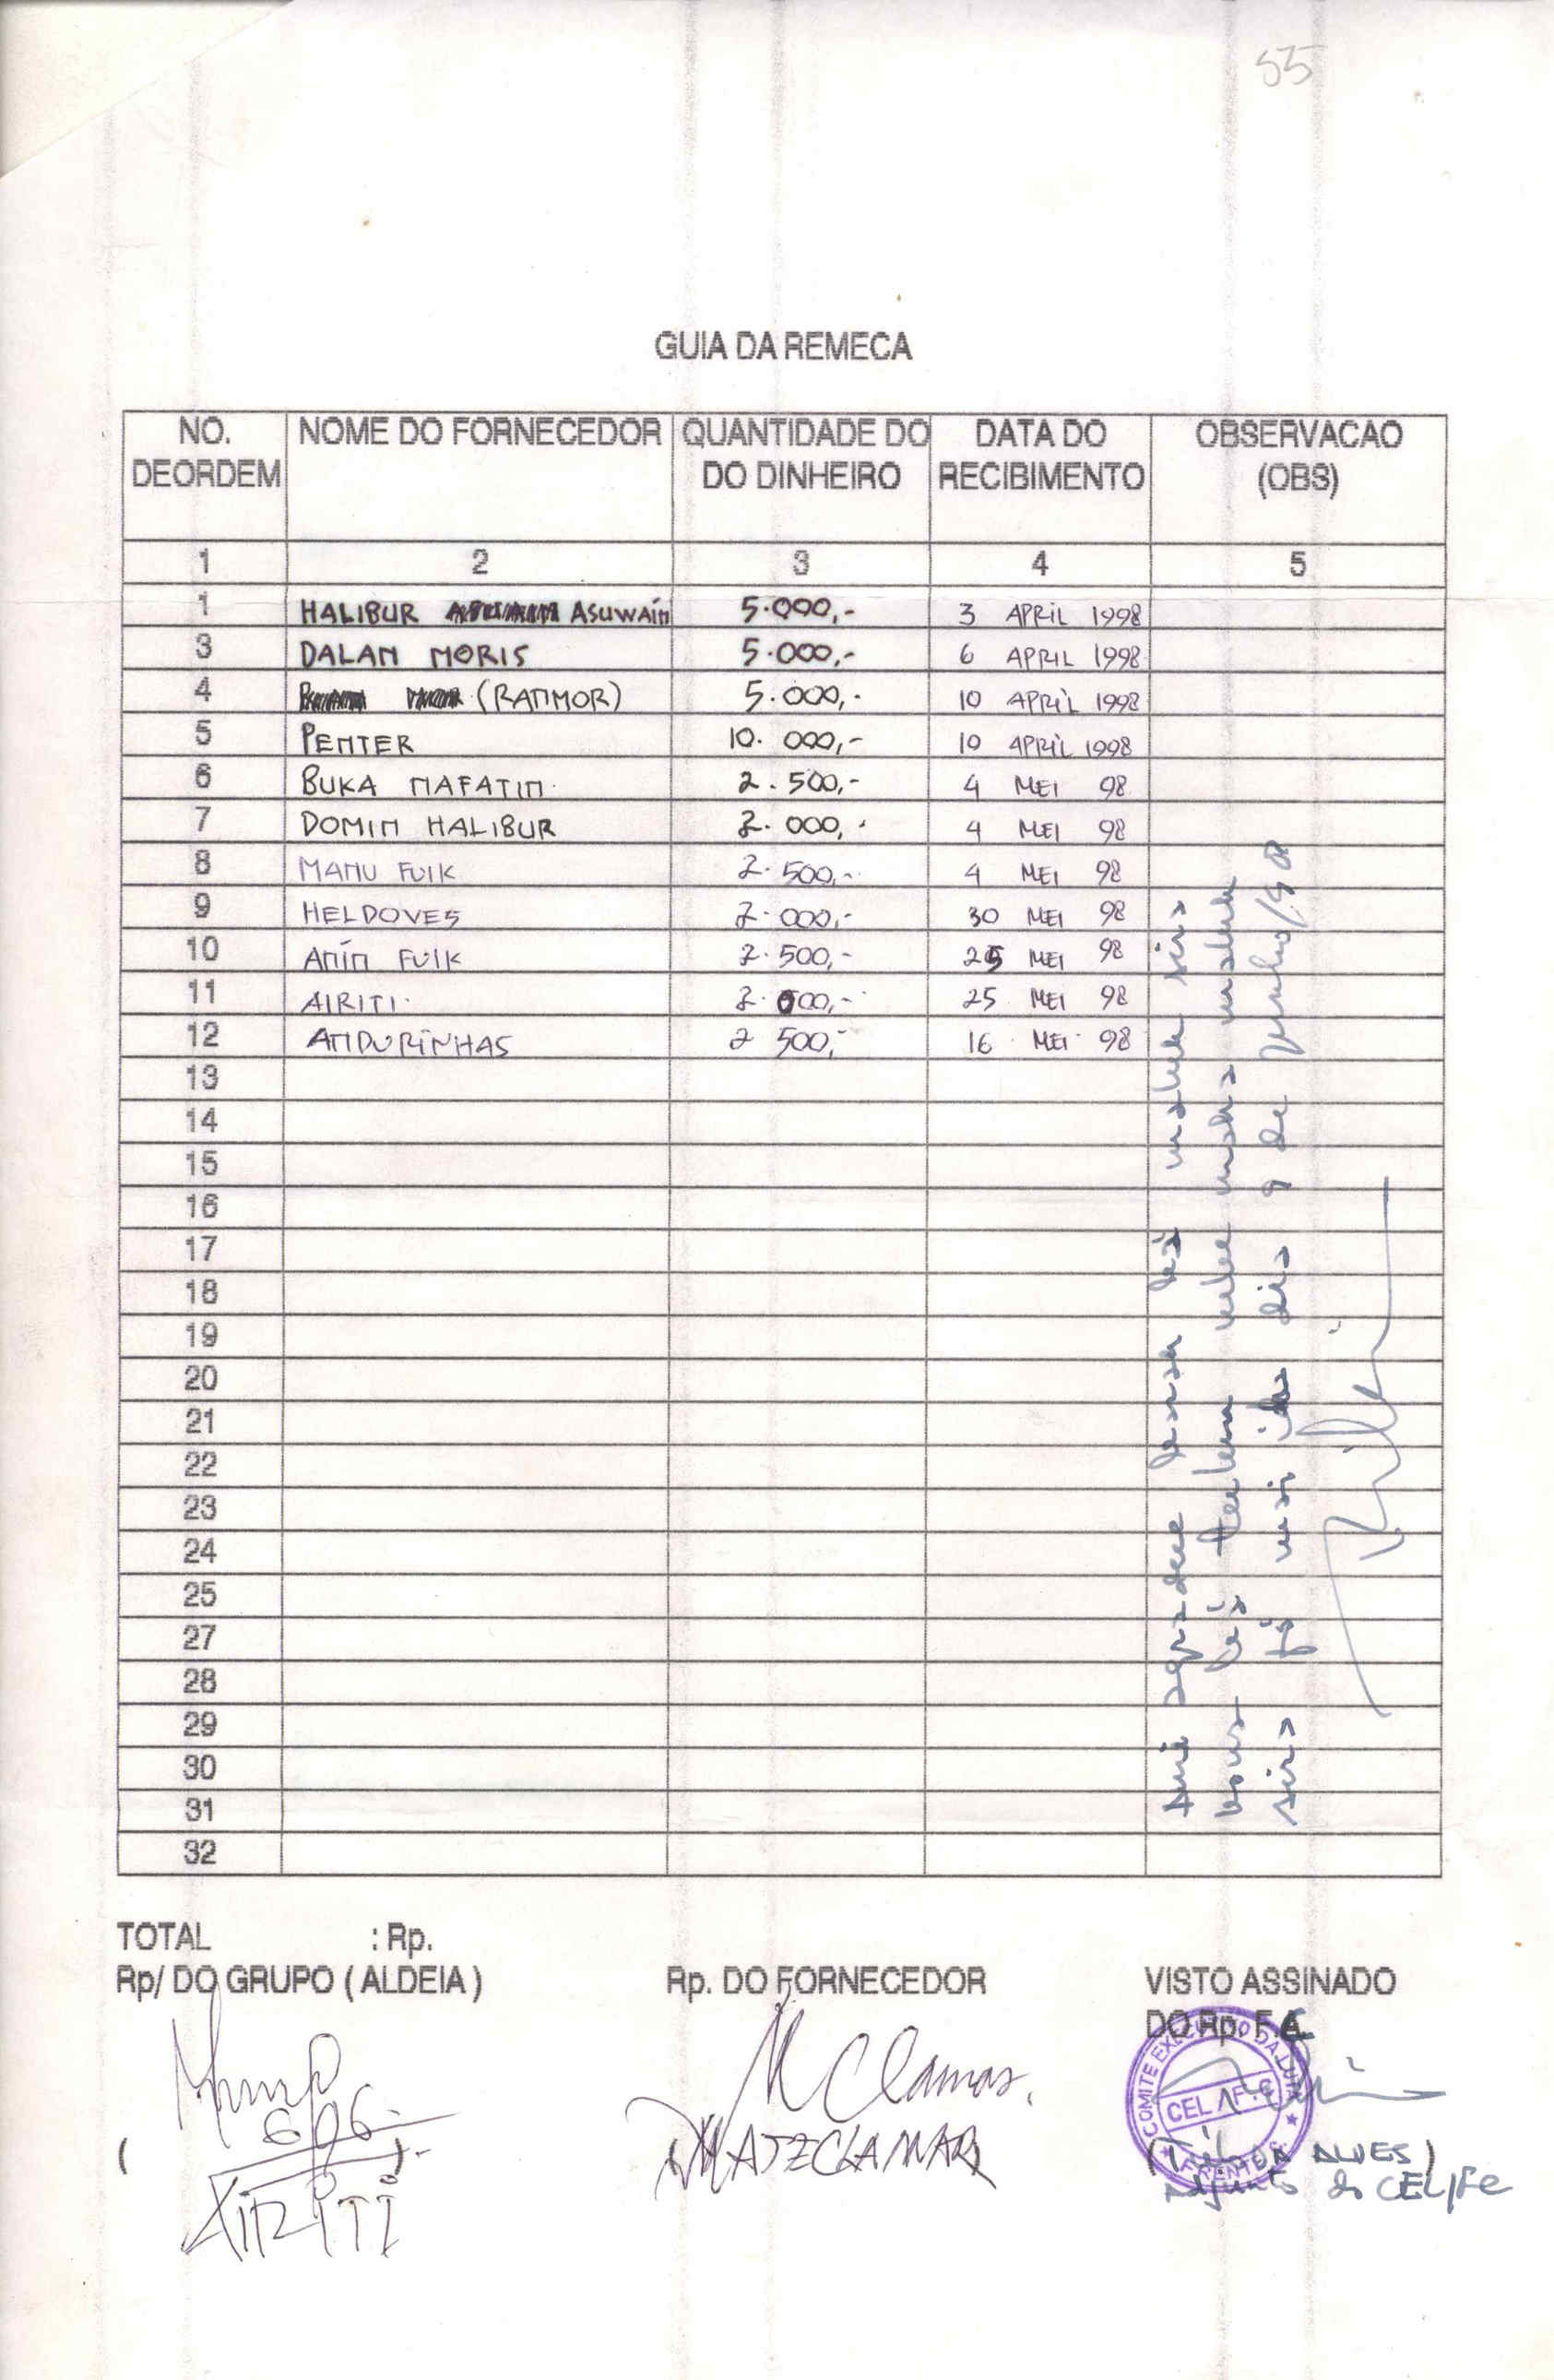 55
GUIA DA REMECA
NO. DEORDEM NOME DO FORNECEDOR QUANTIDADE DO DO DINHEIRO DATA DO RECIBIMENTO OBSERVACAO (OBS)
1 2 3 4 5
1 HALIBUR ASUWAIN 5.000,- 3 APRIL 1998
3 DALAN MORIS 5.000,- 6 APRIL 1998
4 (RANMOR) 5.000,- 10 APRIL 1998
5 PENTER 10.000,- 10 APRIL 1998
6 BUKA NAFATIN 2.500,- 4 MEI 98
7 DOMIN HALIBUR 2.000,- 4 MEI 98
8 MANU FUIK 2.500,- 4 MEI 98
9 HELDOVES 2.000,- 30 MEI 98
10 ANIN FUIK 2.500,- 25 MEI 98
11 AIRITI 2.000,- 25 MEI 98
12 ANDURINHAS 2 500,- 16 MEI 98
13
14
15
16
17
18
19
20
21
22
23
24
25
27
28
29
30
31
32
agradece maluk sira
maluk
sira dia 9 de Junho/98
TOTAL : Rp.
Rp/ DO GRUPO ( ALDEIA ) Rp. DO FORNECEDOR VISTO ASSINADO
DO Rp. F.C
COMITE EXECUTIVO DA LUTA
CEL / F.C
FRENTE C.
M Clamar
MATECLAMAR
( ALVES )
Adjunto do CEL/FC
( )
AIRITI